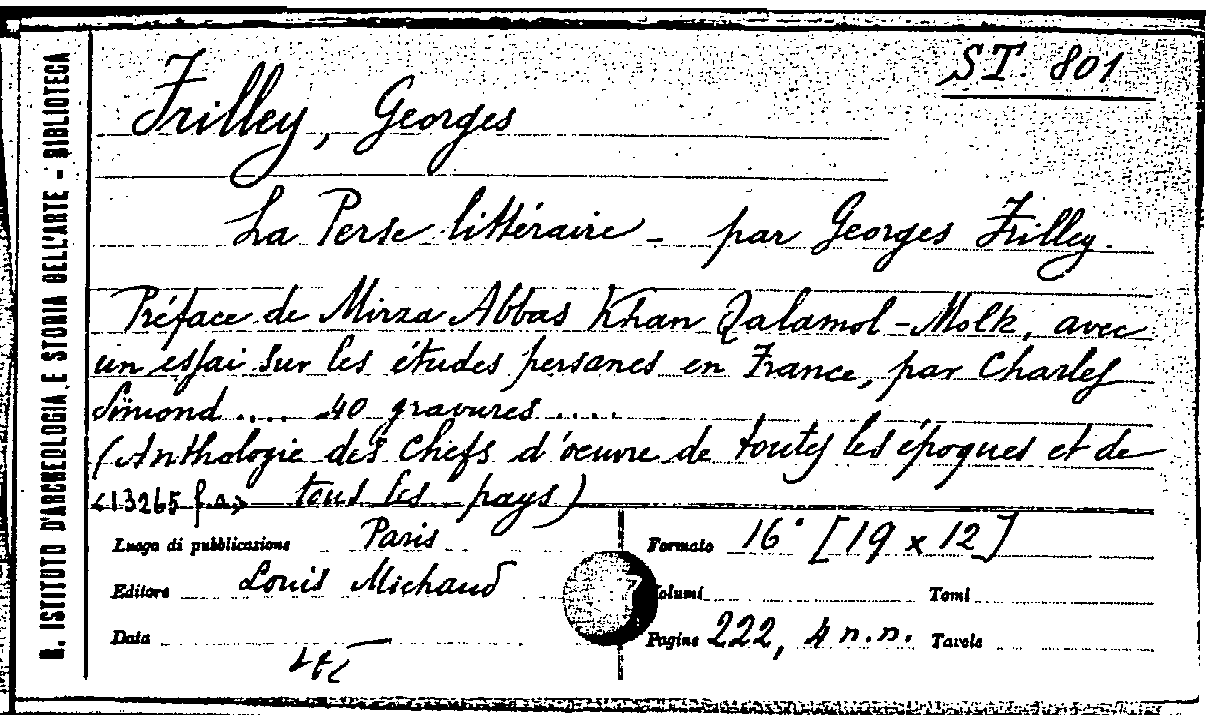 R. ISTITUTO D'ARCHEOLOGIA E STORIA DELL'ARTE - BIBLIOTECA
ST. 801
Frilley, Georges
La Perse littéraire - par Georges Frilley.
Préface de Mirza Abbas Khan Qalamol-Molk, avec
un essai sur les études persanes en France, par Charles
Simond .... 40 gravures .....
(Anthologie des Chefs d'œuvre de toutes les époques et de
<13265 f.a.> tous les pays)
Luogo di pubblicazione Paris
Formato 16° [19 x 12]
Editore Louis Michaud
Volumi Tomi
Data
Pagine 222, 4 n.n. Tavole